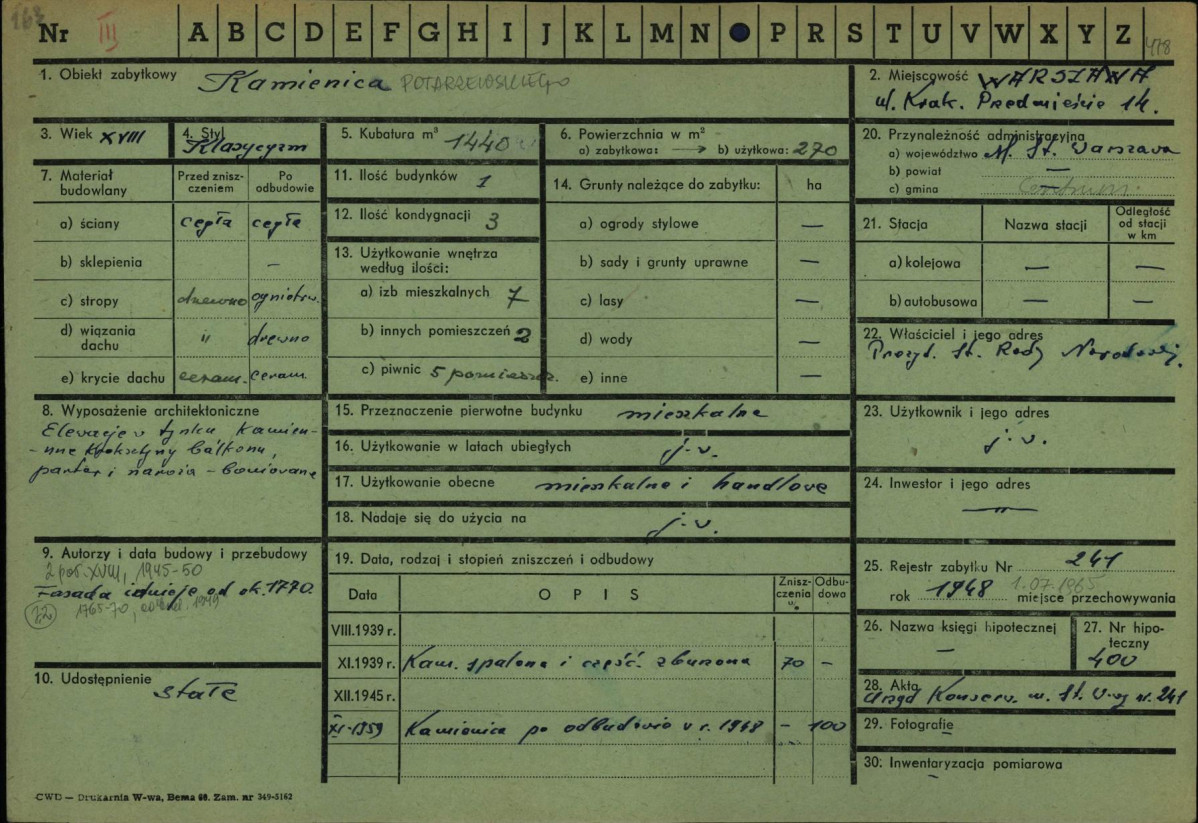 168
Nr III A B C D E F G H I J K L M N P R S T U V W X Y Z 418
1. Obiekt zabytkowy Kamienica POTARZEWSKIEGO
2. Miejscowość WARSZAWA
ul. Krak. Przedmieście 14.
3. Wiek XVIII
4. Styl Klasycyzm
5. Kubatura m³ 1440
6. Powierzchnia w m²
a) zabytkowa: → b) użytkowa: 270
20. Przynależność administracyjna
a) województwo M. St. Warszawa
b) powiat —
c) gmina
7. Materiał budowlany
Przed znisz-
czeniem
Po
odbudowie
a) ściany cegła cegła
b) sklepienia –
c) stropy drewno ogniotrw.
d) wiązania
dachu " drewno
e) krycie dachu ceram. ceram.
11. Ilość budynków 1
12. Ilość kondygnacji 3
13. Użytkowanie wnętrza
według ilości:
a) izb mieszkalnych 7
b) innych pomieszczeń 2
c) piwnic 5 pomieszcz.
14. Grunty należące do zabytku: ha
a) ogrody stylowe —
b) sady i grunty uprawne —
c) lasy —
d) wody —
e) inne —
21. Stacja Nazwa stacji
Odległość
od stacji
w km
a) kolejowa — —
b) autobusowa — —
22. Właściciel i jego adres
Prezyd. St. Rady Narodowej.
8. Wyposażenie architektoniczne
Elewacje w tynku Kamien-
-nne kroksztyny balkonu,
parter i naroża – boniowane
15. Przeznaczenie pierwotne budynku mieszkalne
16. Użytkowanie w latach ubiegłych j.w.
17. Użytkowanie obecne mieszkalne i handlowe
18. Nadaje się do użycia na j.w.
23. Użytkownik i jego adres
j.w.
24. Inwestor i jego adres
—"—
9. Autorzy i data budowy i przebudowy
2 poł. XVIII, 1945-50
Fasada istnieje od ok. 1770.
22 1765-70, 1949
19. Data, rodzaj i stopień zniszczeń i odbudowy
Data OPIS
Znisz-
czenia
%
Odbu-
dowa
VIII.1939 r.
XI.1939 r. Kam. spalona i część. zburzona 70 –
XII.1945 r.
XI-1959 Kamienica po odbudowie w r. 1948 – 100
25. Rejestr zabytku Nr 241
rok 1948 1.07.1965 miejsce przechowywania
26. Nazwa księgi hipotecznej
–
27. Nr hipo-
teczny
400
10. Udostępnienie
stałe
28. Akta
Urząd Konserw. m. St. W-wy nr. 241
29. Fotografie
30. Inwentaryzacja pomiarowa
–
CWD — Drukarnia W-wa, Bema 98. Zam. nr 349-5162